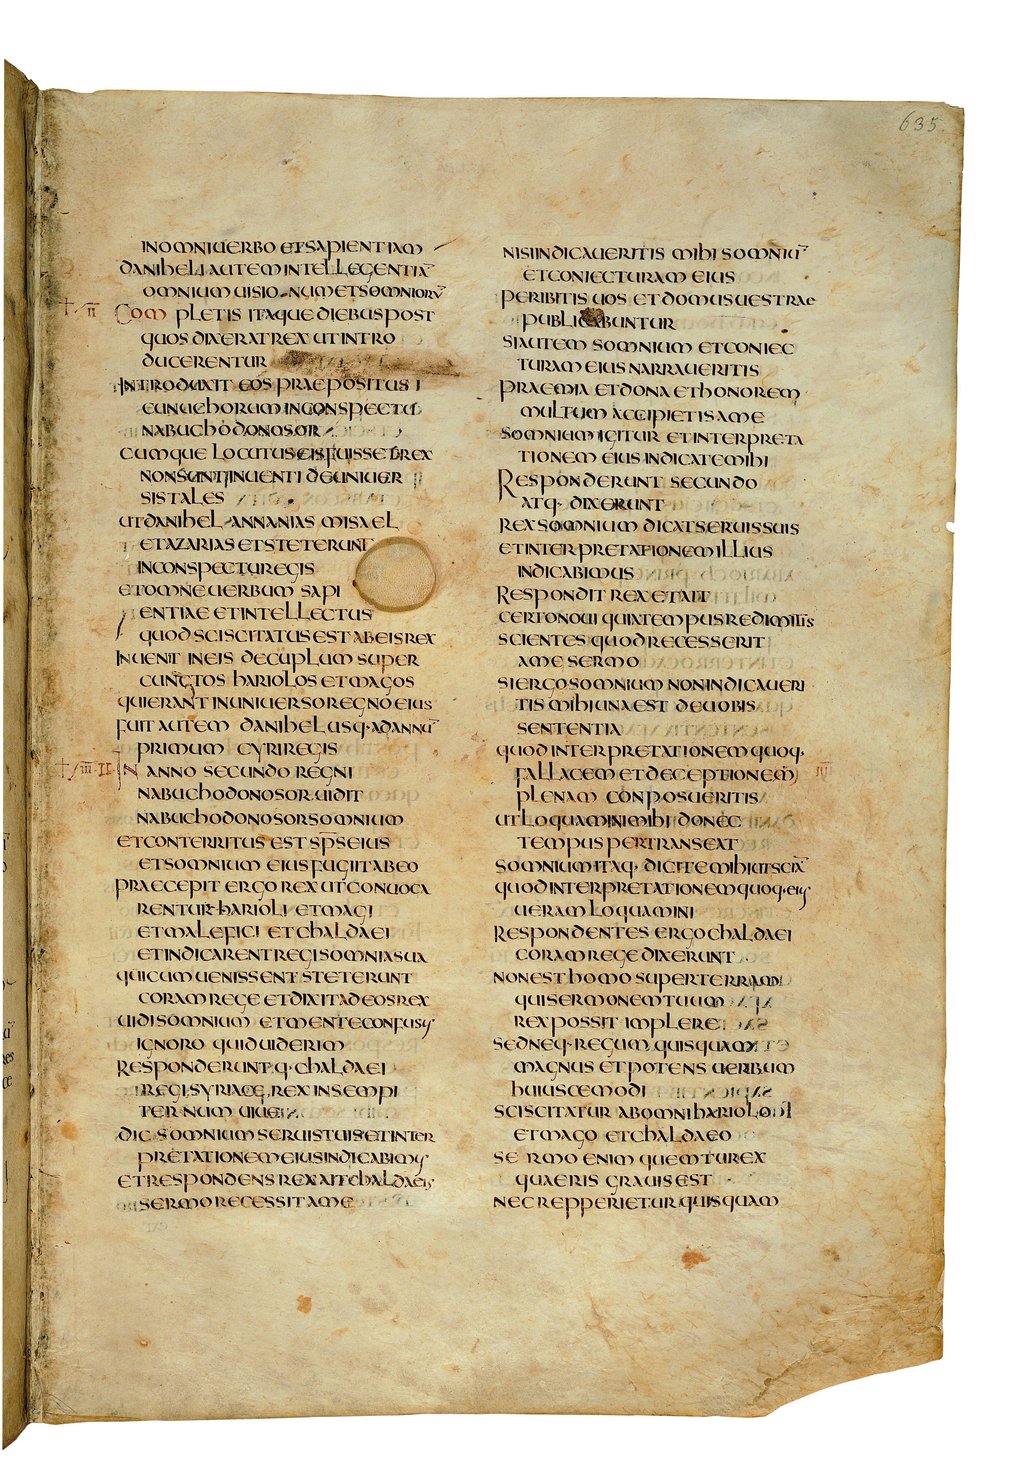 635
IN OMNI UERBO ET SAPIENTIAM
DANIHELI AUTEM INTELLEGENTIĀ
OMNIUM UISIONUM ET SOMNIORŪ
II COMPLETIS ITAQUE DIEBUS POST
QUOS DIXERAT REX UT INTRO
DUCERENTUR
INTRODUXIT EOS PRAEPOSITUS
EUNUCHORUM IN CONSPECTU
NABUCHODONOSOR
CUMQUE LOCUTUS EIS FUISSET REX
NON SUNT INUENTI DE UNIUER
SIS TALES
UT DANIHEL ANNANIAS MISAEL
ET AZARIAS ET STETERUNT
IN CONSPECTU REGIS
ET OMNE UERBUM SAPI
ENTIAE ET INTELLECTUS
QUOD SCISCITATUS EST AB EIS REX
INUENIT IN EIS DECUPLUM SUPER
CUNCTOS HARIOLOS ET MAGOS
QUI ERANT IN UNIUERSO REGNO EIUS
FUIT AUTEM DANIHEL USQ· AD ANNŪ
PRIMUM CYRI REGIS
III·II· IN ANNO SECUNDO REGNI
NABUCHODONOSOR UIDIT
NABUCHODONOSOR SOMNIUM
ET CONTERRITUS EST SP̅S EIUS
ET SOMNIUM EIUS FUGIIT AB EO
PRAECEPIT ERGO REX UT CONUOCA
RENTUR HARIOLI ET MAGI
ET MALEFICI ET CHALDAEI
ET INDICARENT REGI SOMNIA SUA
QUI CUM UENISSENT STETERUNT
CORAM REGE ET DIXIT AD EOS REX
UIDI SOMNIUM ET MENTE CONFUSUS
IGNORO QUID UIDERIM
RESPONDERUNTQ· CHALDAEI
REGI SYRIACE REX IN SEMPI
TERNUM UIUE
DIC SOMNIUM SERUIS TUIS ET INTER
PRETATIONEM EIUS INDICABIMUS
ET RESPONDENS REX AIT CHALDAEIS
SERMO RECESSIT A ME
NISI INDICAUERITIS MIHI SOMNIŪ
ET CONIECTURAM EIUS
PERIBITIS UOS ET DOMUS UESTRAE
PUBLICABUNTUR
SI AUTEM SOMNIUM ET CONIEC
TURAM EIUS NARRAUERITIS
PRAEMIA ET DONA ET HONOREM
MULTUM ACCIPIETIS A ME
SOMNIUM IGITUR ET INTERPRETA
TIONEM EIUS INDICATE MIHI
RESPONDERUNT SECUNDO
ATQ· DIXERUNT
REX SOMNIUM DICAT SERUIS SUIS
ET INTERPRETATIONEM ILLIUS
INDICABIMUS
RESPONDIT REX ET AIT
CERTO NOUI QUIA TEMPUS REDIMITIS
SCIENTES QUOD RECESSERIT
A ME SERMO
SI ERGO SOMNIUM NON INDICAUERI
TIS MIHI UNA EST DE UOBIS
SENTENTIA
QUOD INTERPRETATIONEM QUOQ·
FALLACEM ET DECEPTIONEM IIII
PLENAM CONPOSUERITIS
UT LOQUAMINI MIHI DONEC
TEMPUS PERTRANSEAT
SOMNIUM ITAQ· DICITE MIHI UT SCIĀ
QUOD INTERPRETATIONEM QUOQ· EIUS
UERAM LOQUAMINI
RESPONDENTES ERGO CHALDAEI
CORAM REGE DIXERUNT
NON EST HOMO SUPER TERRAM
QUI SERMONEM TUUM
REX POSSIT IMPLERE
SED NEQ· REGUM QUISQUAM
MAGNUS ET POTENS UERBUM
HUIUSCEMODI
SCISCITATUR AB OMNI HARIOLO
ET MAGO ET CHALDAEO
SERMO ENIM QUEM TU REX
QUAERIS GRAUIS EST
NEC REPPERIETUR QUISQUAM